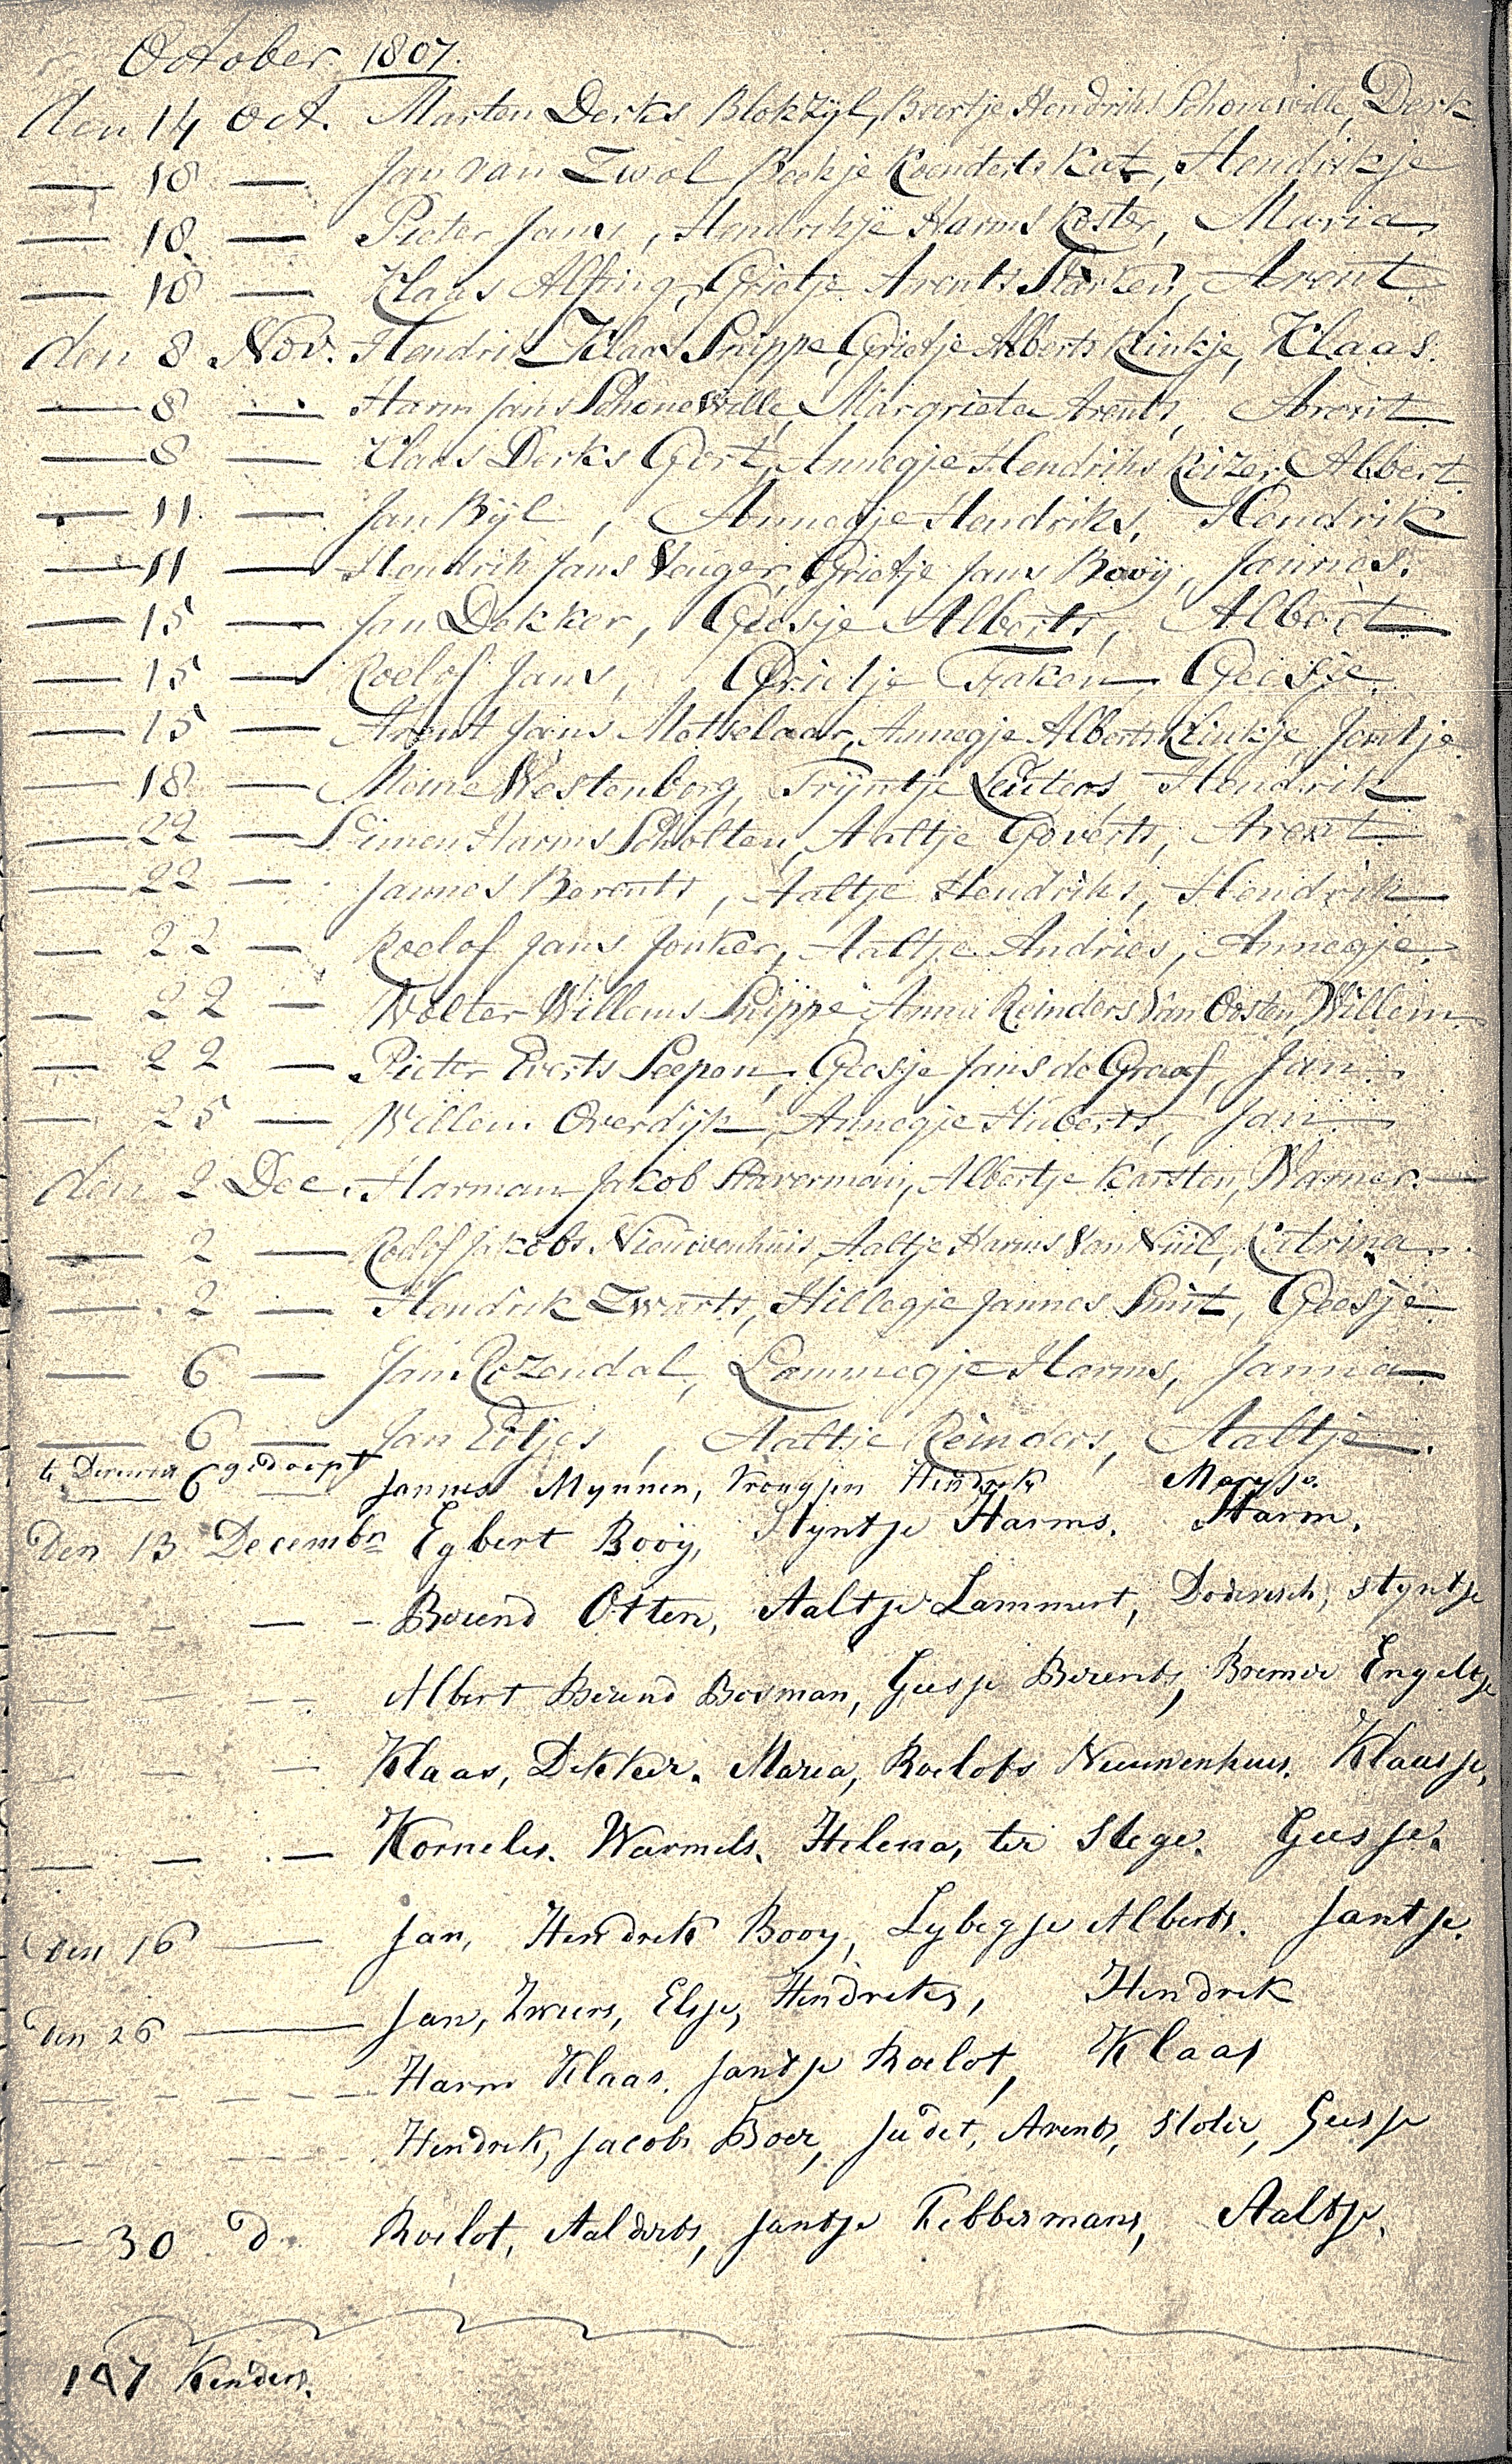 October 1807.
den 14 Oct. Marten Derks Blokzyl, Beertje Hendriks Schonewille, Derk
— 18 — Jan van Zwol Koendert Kat, Hendrikje
— 18 — Pieter Jans, Hendrikje Harms Koster, Maria
— 18 — Klaas Alting, Grietje Arents Starken, Arent
den 8 Nov. Hendrik Klaas Snippe, Grietje Alberts Kinkje, Klaas.
— 8 — Harm Jans Schonewille, Margrieta Arents, Arent
— 8 — Klaas Derks Gort, Annegje Hendriks Keizer, Albert
— 11 — Jan Bijl, Annegje Hendriks, Hendrik
— 11 — Hendrik Jans Venger, Grietje Jans Booij, Jannes.
— 15 — Jan Dekker, Geesje Alberts, Albert
— 15 — Roelof Jans, Grietje Faken, Geesje
— 15 — Arent Jans Metselaar, Annegje Alberts Kinkje, Jantje
— 18 — Meine Westenberg, Trijntje Luiters, Hendrik
— 22 — Simen Harms Scholten, Aaltje Goverts, Arent
— 22 — Jannes Berents, Aaltje Hendriks, Hendrik
— 22 — Roelof Jans Jonker, Aaltje Andries, Annegje.
— 22 — Wolter Willems Snippe, Anna Reinders Van Oosten, Willem
— 22 — Pieter Everts Seepen, Geesje Jans de Graaf, Jan
— 25 — Willem Overdijk, Annegje Huberts, Jan
den 2 Dec. Harman Jakob Staverman, Albertje Karsten, Warner.
— 2 — Roelof Jakobs Nieuwenhuis, Aaltje Harms Van Nuil, Katrina
— 2 — Hendrik Zwarts, Hillegje Jannes Smit, Geesje
— 6 — Jan Rozendal, Lammegje Harms, Janna
— 6 — Jan Eitjes, Aaltje Reinders, Aaltje.
te 6 gedoopt Jannes Mynnen, Vrougjen Hendrik Margje.
Den 13 Decembr Egbert Booij, Styntje Harms. Harm.
— - — - Berend Otten, Aaltje Lammert, Styntje
— — — Albert Berend Bosman, Geesje Berents, Bremer Engeltje
— — — Klaas, Dekker. Maria, Roelofs Nieuwenhuis. Klaasje,
— — — Kornelis. Warmels. Helena, ter Stege. Geesje.
Den 16 — Jan, Hendrik Booy, Lybegje Alberts. Jantje.
Den 26 — Jan, Zweers, Elsje, Hendreks, Hendrik
— — — Harm Klaas. Jantje Roelof, Klaas
— — — Hendrik, Jacobs Boer, Judet, Arents, Geesje
— 30 d Roelof, Aalderts, Jantje Tebbermans, Aaltje.
147 Kenders.